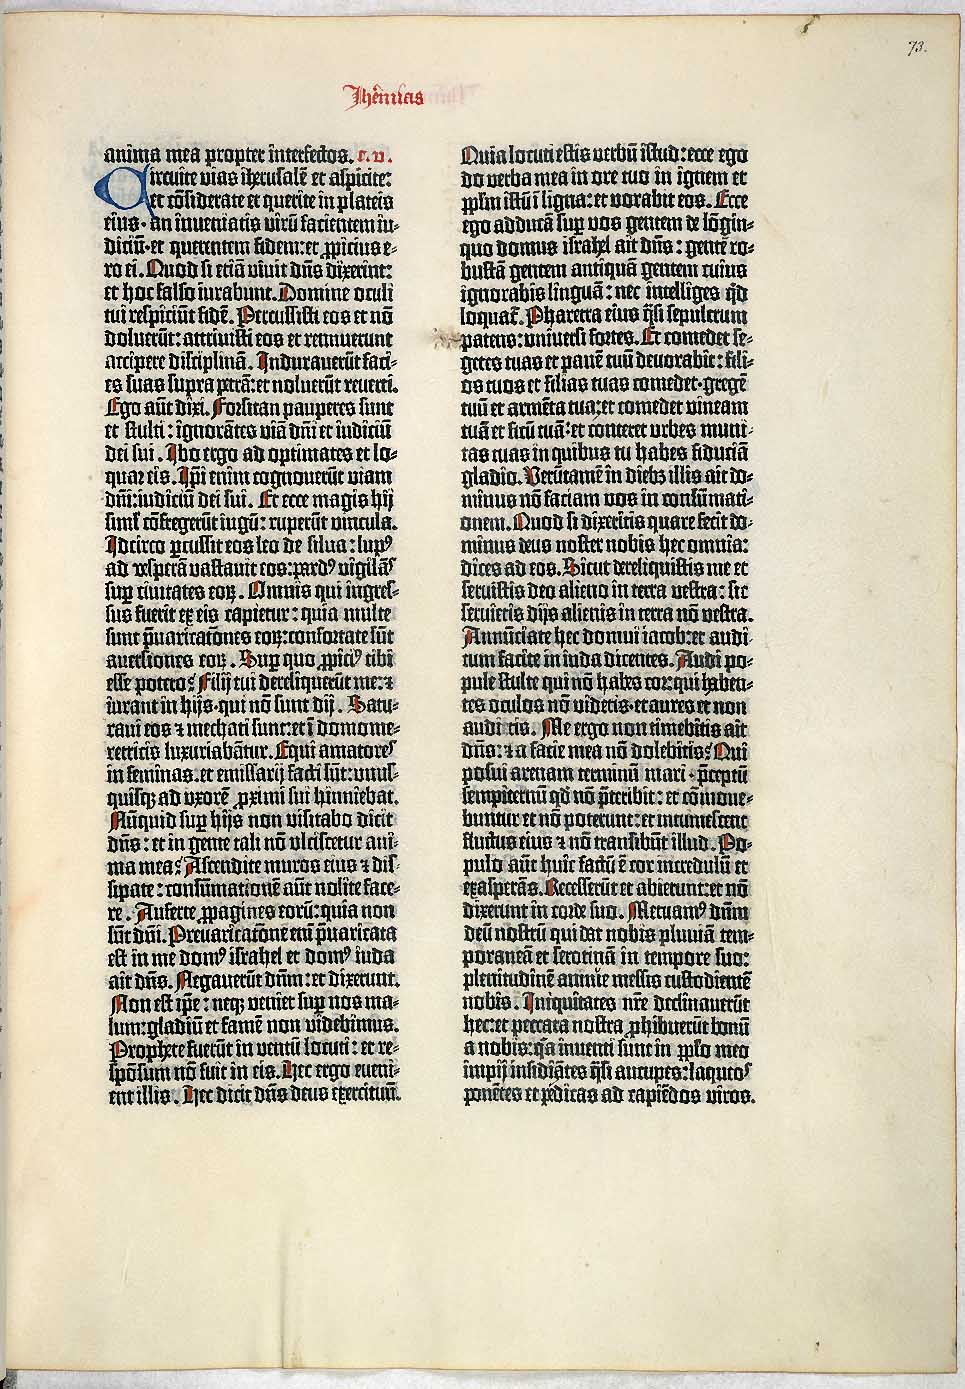 73.
Jheremias
anima mea propter interfectos. c. v.
Circuite vias iherusalē et aspicite:
et cōsiderate et querite in plateis
eius· an inveniatis virū facientem iu-
diciū·et querentem fidem:et ꝓpicius e-
ro ei. Quod si etiā vivit dn̄s dixerint:
et hoc falso iurabunt. Domine oculi
tui respiciūt fidē. Percussisti eos et nō
doluerūt: attrivisti eos et rennuerunt
accipere disciplinā. Induraverūt faci-
es suas supra petrā:et noluerūt reverti.
Ego aūt dixi. Forsitan pauperes sunt
et stulti: ignorātes viā dn̄i et iudiciū
dei sui. Ibo ergo ad optimates et lo-
quar eis. Ip̄i enim cognoverūt viam
dn̄i:iudiciū dei sui. Et ecce magis hij
simł cōfregerūt iugū: ruperūt vincula.
Idcirco ꝑcussit eos leo de silva: lupꝰ
ad vesperā vastavit eos: pardꝰ vigilās
suꝑ civitates eoꝝ. Omnis qui ingres-
sus fuerit ex eis capietur: quia multe
sunt p̄uaricatōnes eoꝝ: confortate sūt
aversiones eoꝝ. Suꝑ quo ꝓpiciꝰ tibi
esse potero? Filij tui dereliquerūt me: ⁊
iurant in hijs·qui nō sunt dij. Satu-
ravi eos ⁊ mechati sunt:et ī domo me-
retricis luxuriabātur. Equi amatores
in feminas: et emissarij facti sūt: unus-
quisqꝫ ad uxorē ꝓximi sui hinniebat.
Nūquid suꝑ hijs non visitabo dicit
dn̄s: et in gente tali nō ulciscetur ani-
ma mea? Ascendite muros eius ⁊ dis-
sipate: consūmationē aūt nolite face-
re. Auferte ꝓpagines eorū: quia non
sūt dn̄i. Prevaricatōne em̄ p̄uaricata
est in me domꝰ israhel et domꝰ iuda
ait dn̄s. Negaverūt dn̄m: et dixerunt.
Non est ip̄e: neqꝫ veniet suꝑ nos ma-
lum: gladiū et famē non videbimus.
Prophete fuerūt in ventū locuti: et re-
spōsum nō fuit in eis. Hec ergo eveni-
ent illis. Hec dicit dn̄s deus exercituū.
Quia locuti estis verbū istud: ecce ego
do verba mea in ore tuo in ignem et
pp̄lm istū ī ligna: et vorabit eos. Ecce
ego adducā suꝑ vos gentem de lōgin-
quo domus israhel ait dn̄s: gentē ro-
bustā gentem antiquā gentem cuius
ignorabis linguā: nec intelliges qd̄
loquat̄. Pharetra eius q̄si sepulcrum
patens: universi fortes. Et comedet se-
getes tuas et panē tuū devorabit: fili-
os tuos et filias tuas comedet·gregē
tuū et armēta tua: et comedet vineam
tuā et ficū tuā: et conteret urbes muni-
tas tuas in quibus tu habes fiduciā
gladio. Verūtamē in diebꝫ illis ait do-
minus nō faciam vos in consūmati-
onem. Quod si dixeritis quare fecit do-
minus deus noster nobis hec omnia:
dices ad eos. Sicut dereliquistis me et
servistis deo alieno in terra vestra: sic
servietis dijs alienis in terra nō vestra.
Annūciate hec domui iacob: et audi-
tum facite in iuda dicentes. Audi po-
pule stulte qui nō habes cor: qui haben-
tes oculos nō videtis: et aures et non
auditis. Me ergo non timebitis ait
dn̄s: ⁊ a facie mea nō dolebitis? Qui
posui arenam terminū mari· p̄ceptū
sempiternū qd̄ nō p̄teribit: et cōmove-
buntur et nō poterunt: et intumescent
fluctus eius ⁊ nō transibūt illud. Po-
pulo aūt huic factū ē cor incredulū et
exasperās. Recesserūt et abierunt: et nō
dixerunt in corde suo. Metuamꝰ dn̄m
deū nostrū qui dat nobis pluviā tem-
poraneā et serotinā in tempore suo:
plenitudinē annue messis custodientē
nobis. Iniquitates nr̄e declinaverūt
hec: et peccata nostra ꝓhibuerūt bonū
a nobis: q̄a inventi sunt in pp̄lo meo
impij insidiātes q̄si aucupes: laqueos
ponētes et pedicas ad capiēdos viros.